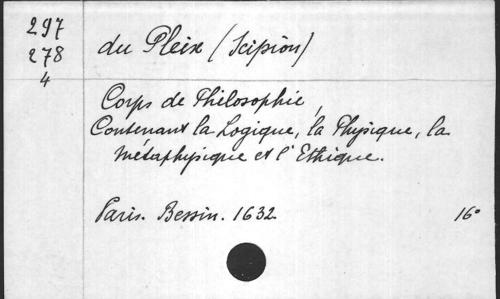 297
278
4
du Pleix (Scipion)
Corps de Philosophie,
Contenant la Logique, la Physique, la
Métaphysique et l'Ethique.
Paris. Bessin. 1632.
16°